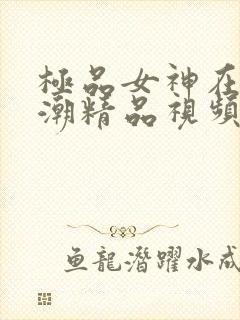 極品女神在
潮精品視頻
鱼龍潛躍水成